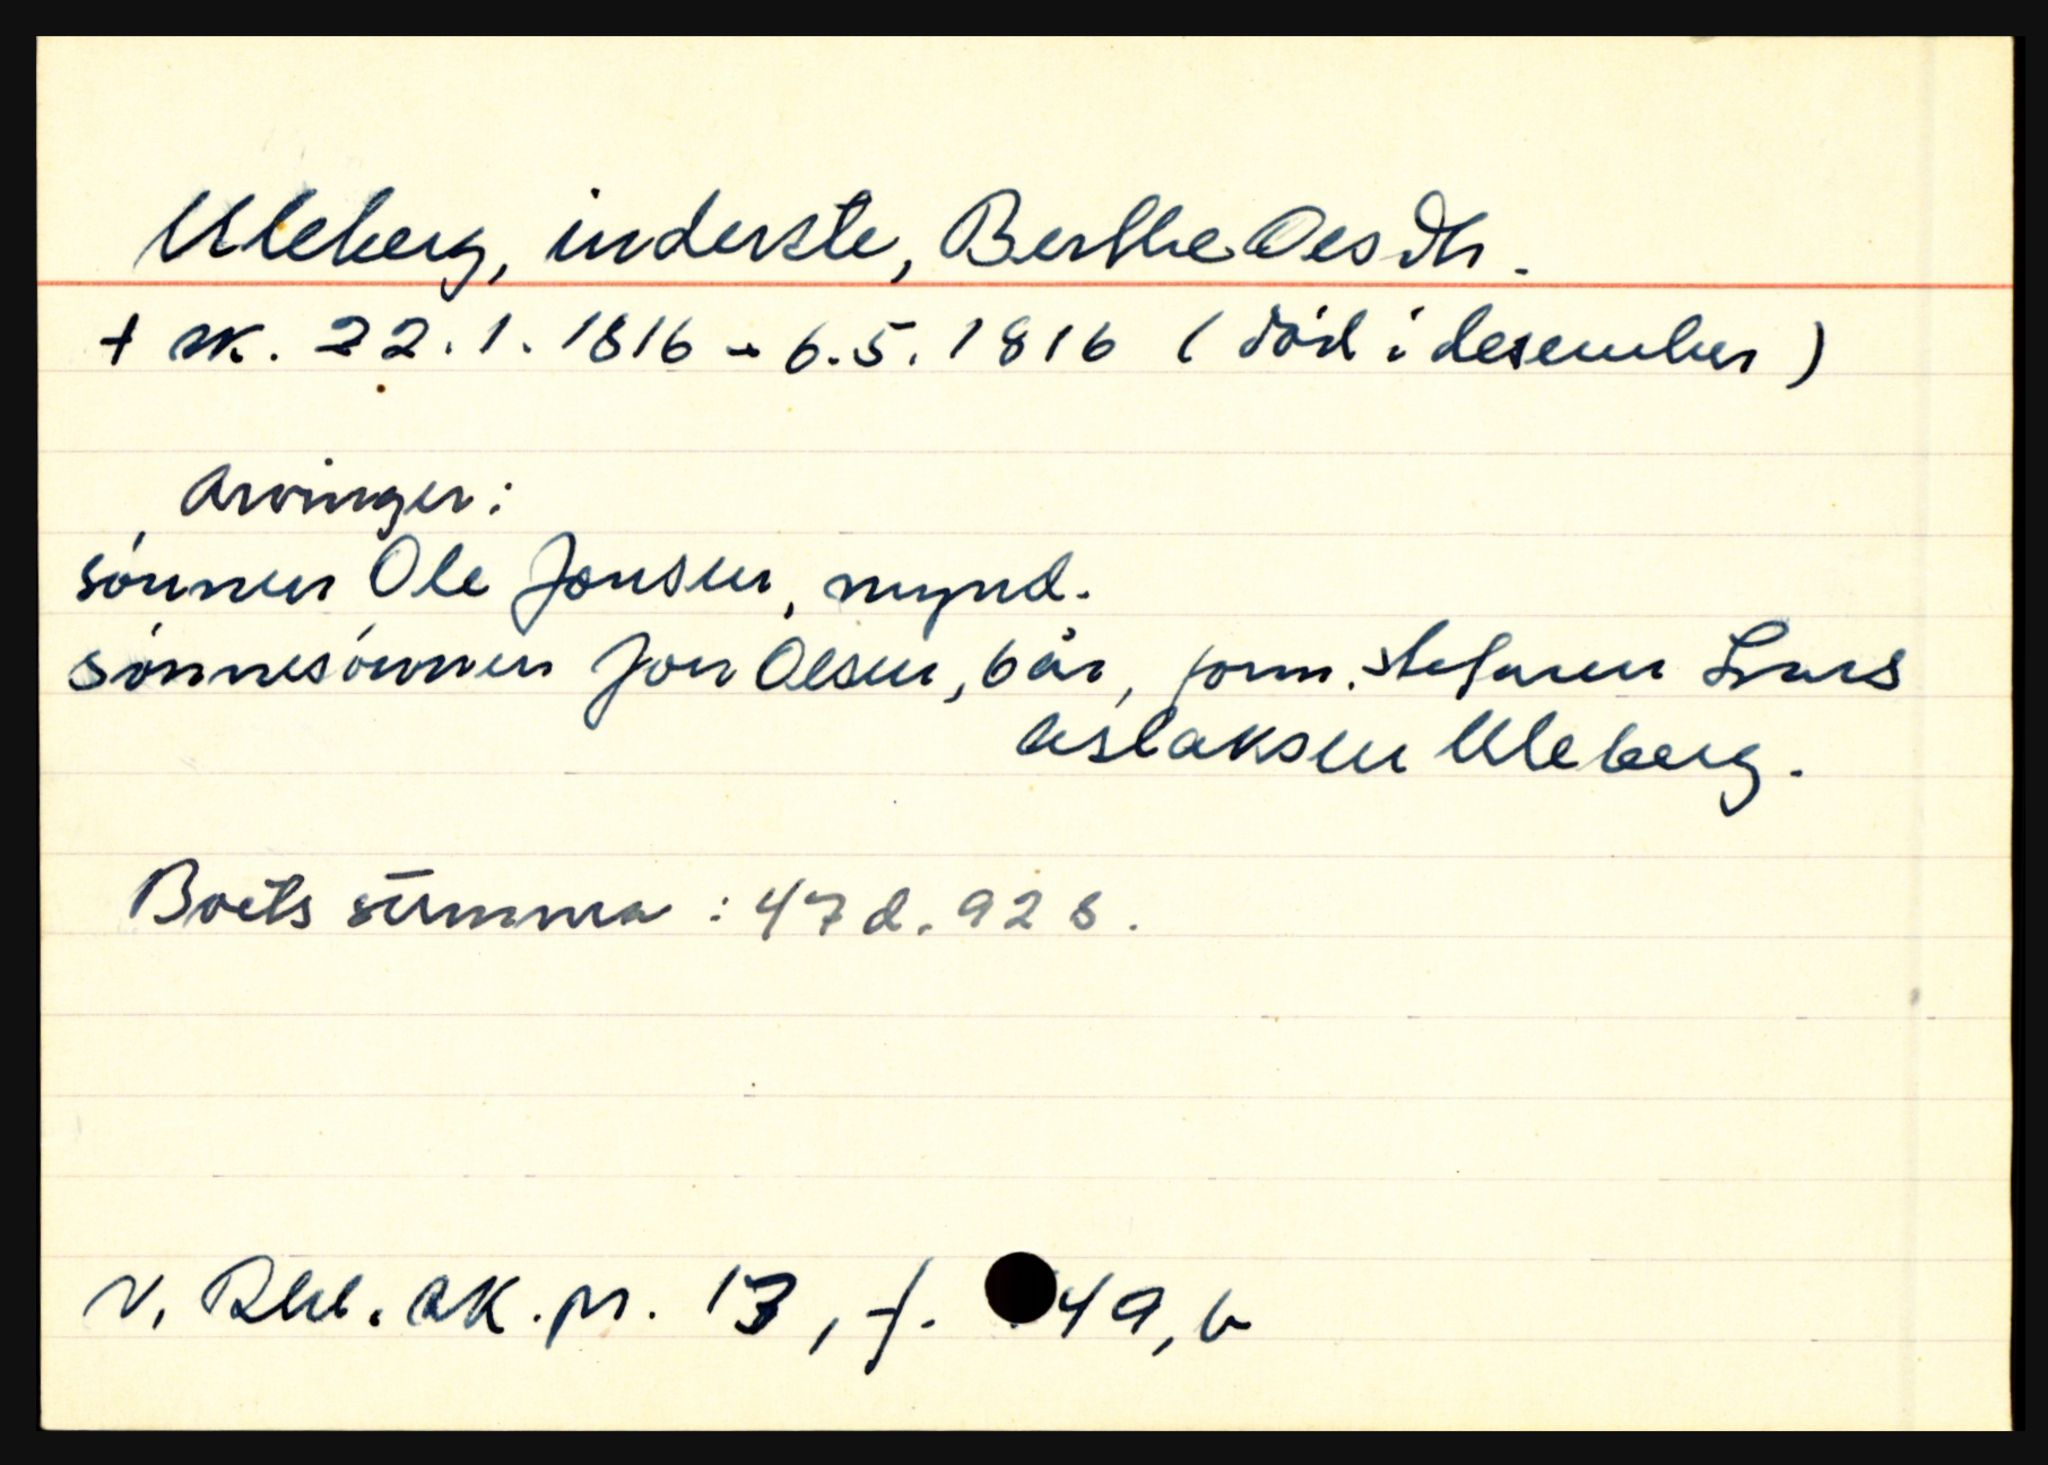 Uleberg, inderste, Berthe Olsdtr.
+ sk. 22.1.1816 - 6.5.1816 (død i desember)
Arvinger:
sønnen Ole Jonsen, mynd.
sønnesønnen Jon Olsen, 6 år, form. stefaren Lars
Aslaksen Uleberg.
Boets summa : 47 d. 92 s.
N. Rbl. sk. pr. 13, f. 49, b